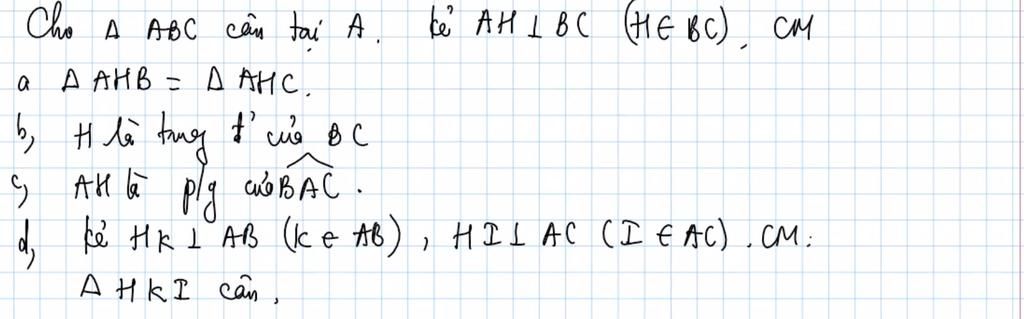 Cho Δ ABC cân tại A. kẻ AH ⊥ BC (H ∈ BC). CM
a Δ AHB = Δ AHC.
b, H là trung đ' của BC
c, AH là p/g của \widehat{BAC}.
d, kẻ HK ⊥ AB (K ∈ AB), HI ⊥ AC (I ∈ AC). CM:
Δ HKI cân.